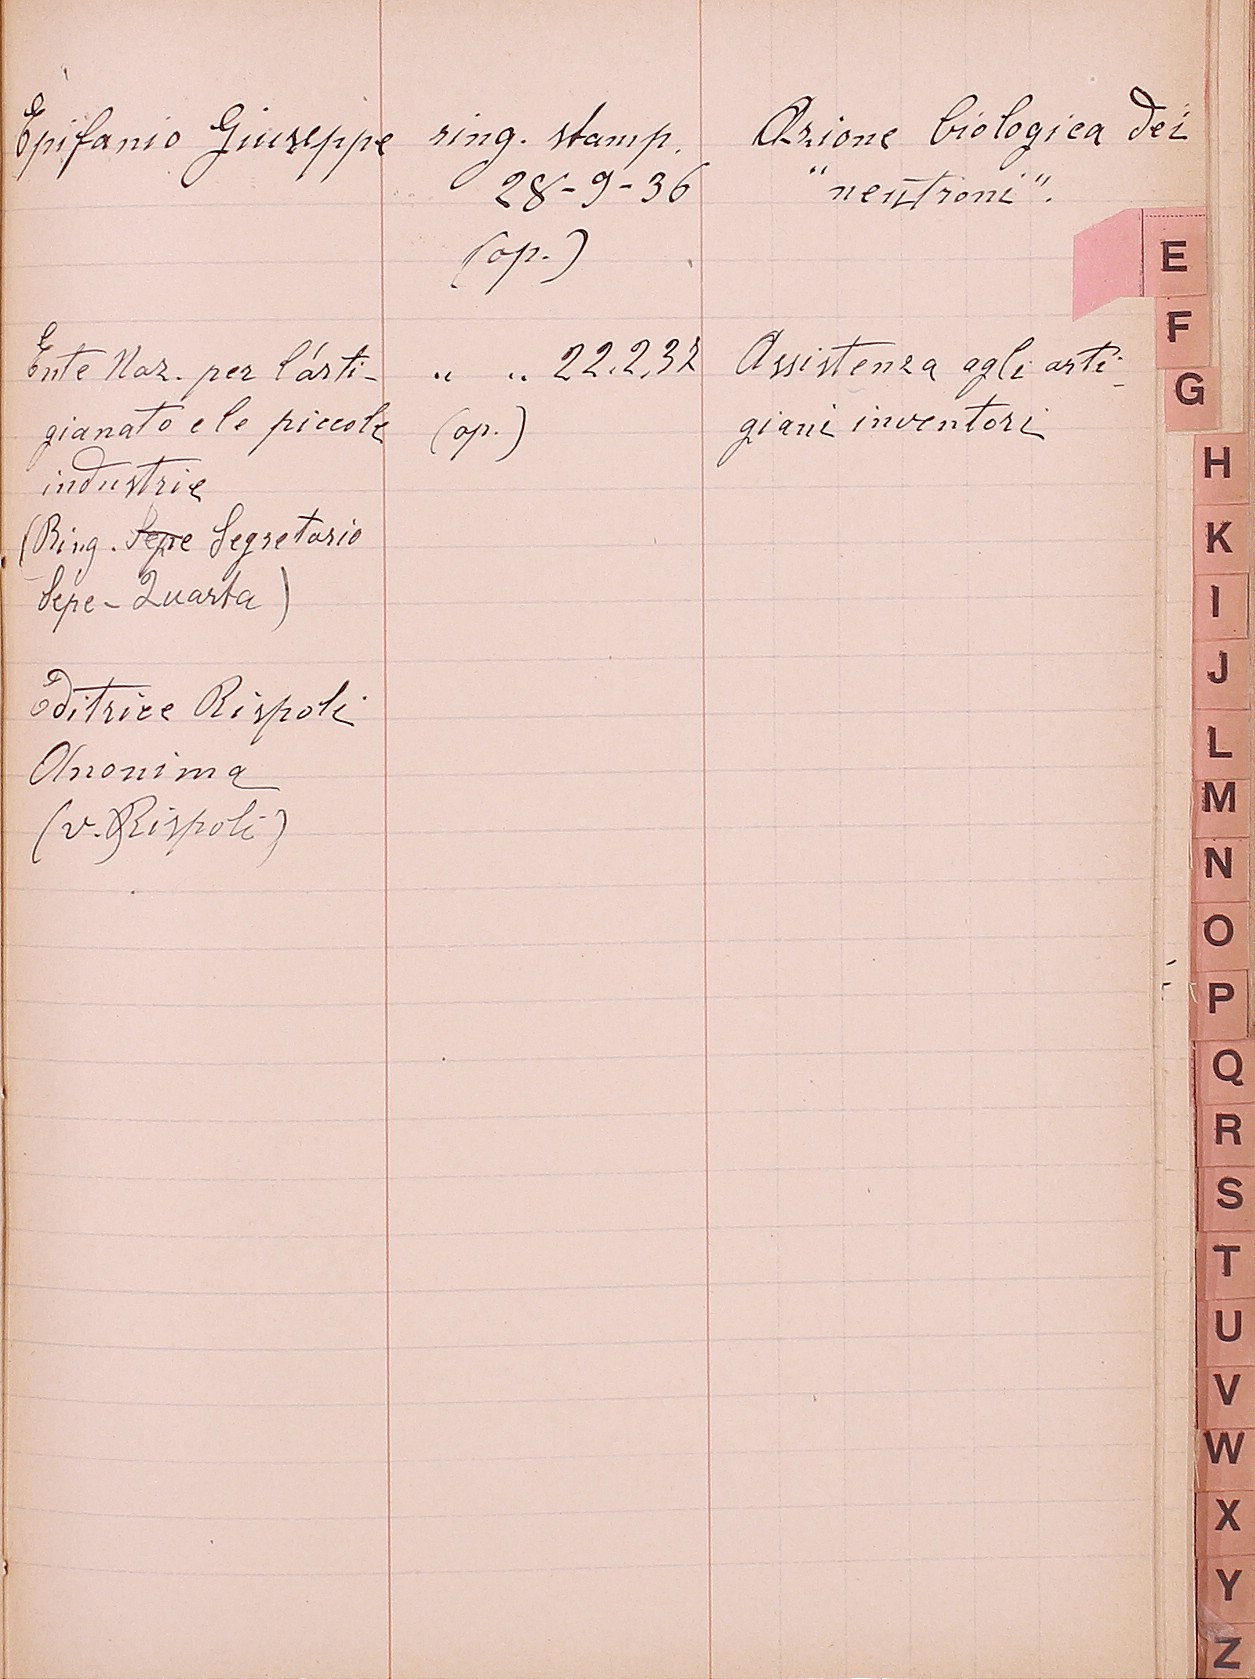 Epifanio Giuseppe ring. stamp. Azione biologica dei
28-9-36 "neutroni".
(op.)
Ente Naz. per l'arti- " " 22.2.37 Assistenza agli arti-
gianato e le piccole (op.) giani inventori
industrie
(Ring. Sepe Segretario
Sepe - Quarta)
Editrice Rispoli
Anonima
(v. Rispoli)
E
F
G
H
K
I
J
L
M
N
O
P
Q
R
S
T
U
V
W
X
Y
Z